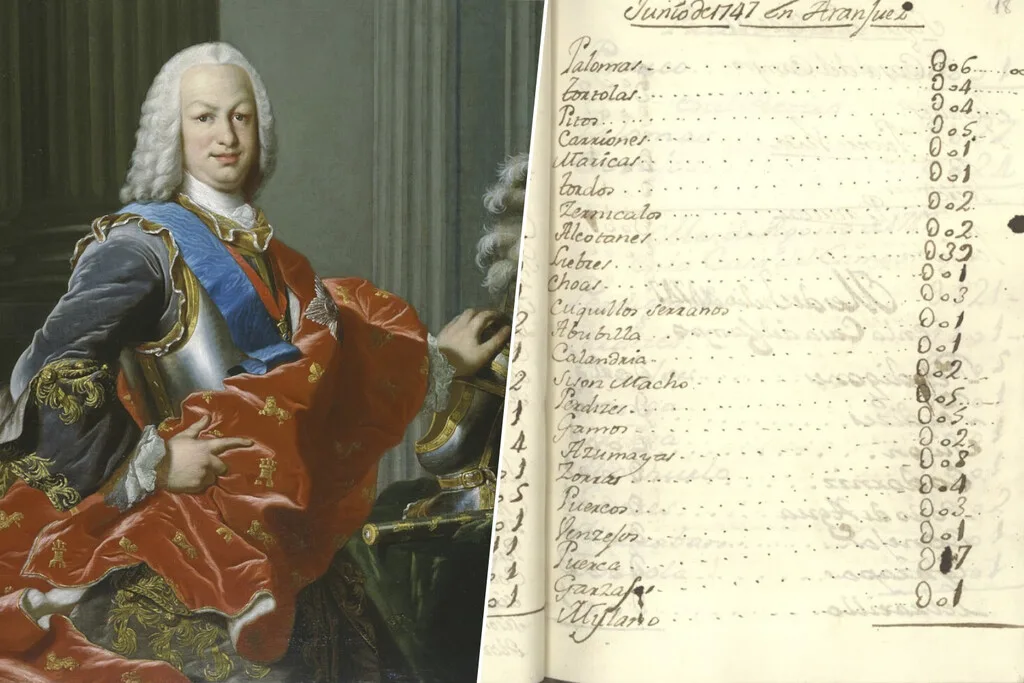 Junio de 1747 en Aranjuez
18
Palomas 006
tortolas 004
Pitos 004
Carriones 005
Maricas 001
tordos 001
Zernicalos 002
Alcotanes 002
Liebres 039
Choas 001
Cuquillos Serranos 003
Abubilla 001
Calandria 001
Sison Macho 002
Perdizes 005
Gamos 005
Azumayas 002
Zorras 008
Puercos 004
Venzejos 003
Puerca 001
Garzasos 017
Mylano 001